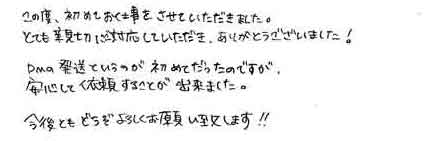 この度、初めてお仕事をさせていただきました。
とても親切に対応していただき、ありがとうございました!
DMの発送というのが初めてだったのですが、
安心して依頼することが出来ました。
今後ともどうぞよろしくお願い致します!!